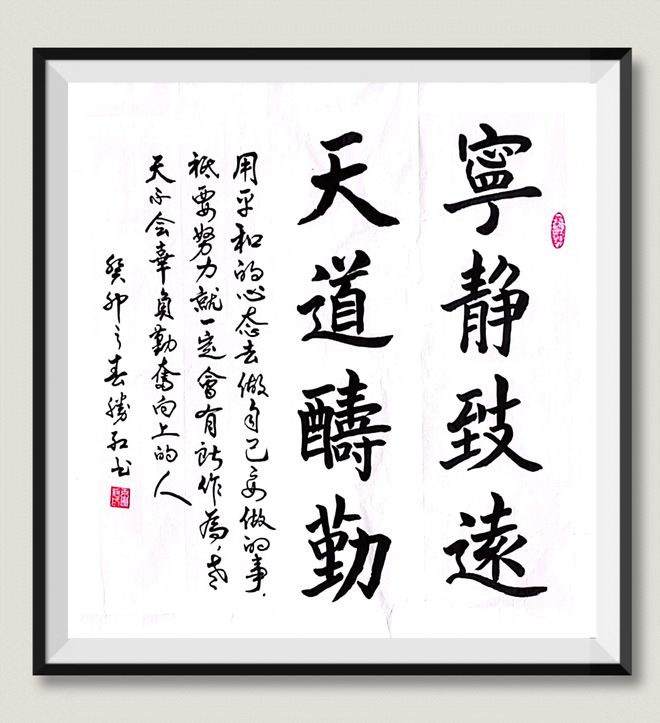 寧静致遠
天道醻勤
用平和的心态去做自己要做的事.
祇要努力就一定會有所作為,老
天不会辜負勤奮向上的人
癸卯之春勝红书